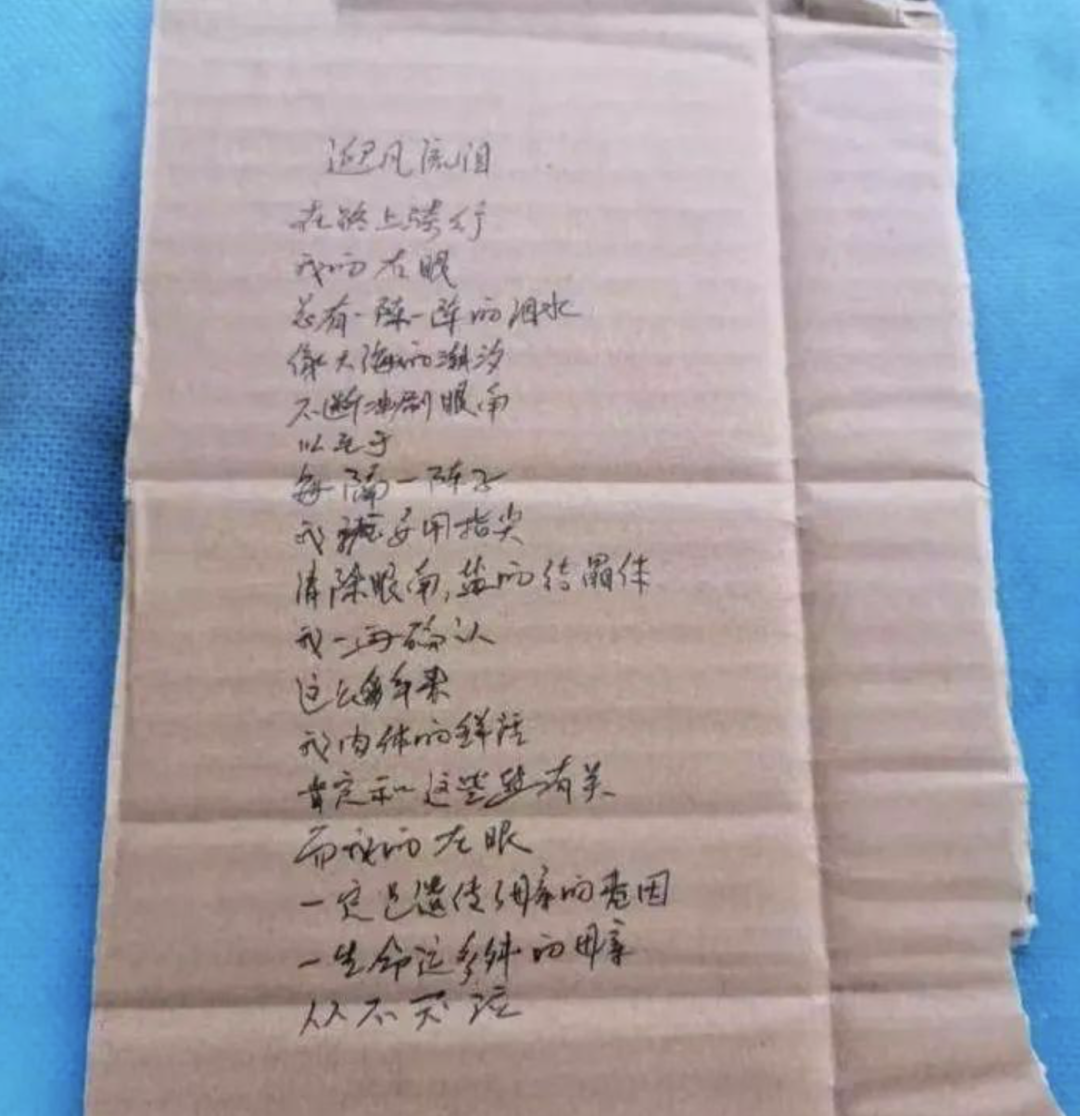 迎风流泪
在路上骑行
我的左眼
总有一阵一阵的泪水
像大海的潮汐
不断冲刷眼角
以至于
每隔一阵子
我就要用指尖
清除眼角,盐的结晶体
我一再确认
这么多年来
我肉体的鲜活
肯定和这些盐有关
而我的左眼
一定是遗传了母亲的基因
一生命运多舛的母亲
从不哭泣